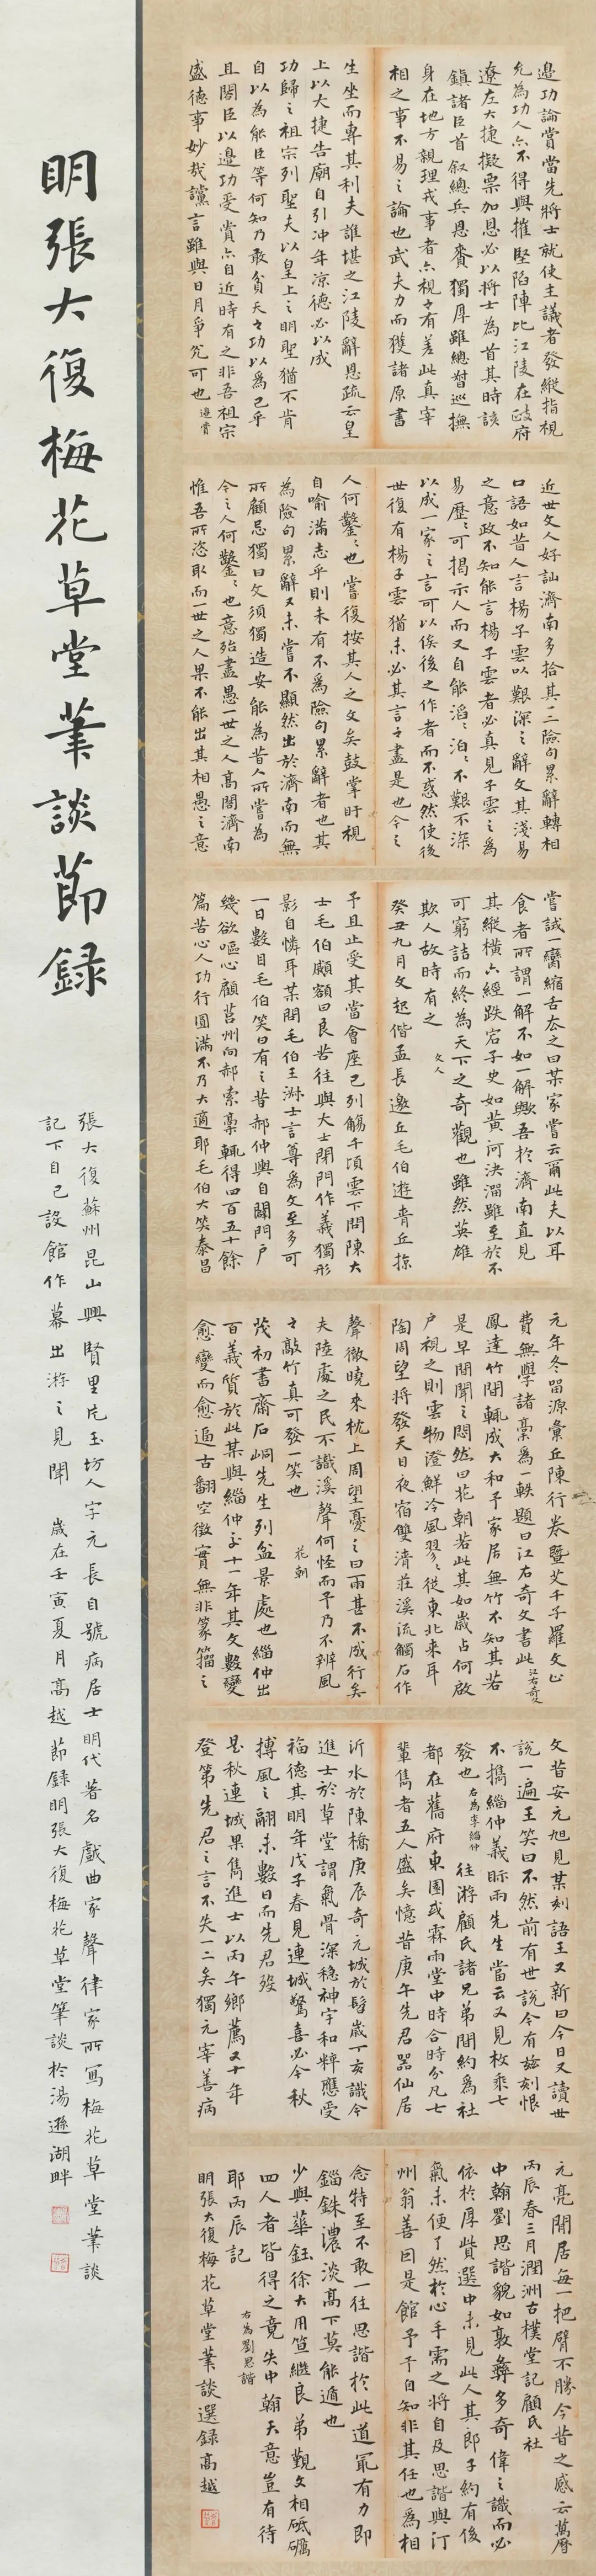 明張大復梅花草堂筆談節録
張大復蘇州昆山興賢里片玉坊人字元長自號病居士明代著名戲曲家聲律家所寫梅花草堂筆談
記下自己設館作幕出游之見聞 歲在壬寅夏月高越節録明張大復梅花草堂筆談於湯遜湖畔
邊功論賞當先將士就使主議者發縱指視
允為功人亦不得與摧堅陷陣比江陵在政府
遼左大捷擬票加恩必以將士為首其時該
鎮諸臣首叙總兵恩賚獨厚雖總督巡撫
身在地方親理戎事者亦視之有差此真宰
相之事不易之論也武夫力而獲諸原書
生坐而專其利夫誰堪之江陵辭恩疏云皇
上以大捷告廟自引冲年凉德必以成
功歸之祖宗列聖夫以皇上之明聖猶不肯
自以為能臣等何知乃敢貪天之功以為己乎
且閣臣以邊功受賞亦自近時有之非吾祖宗
盛德事妙哉讜言雖與日月爭光可也 邊賞
近世文人好訕濟南多拾其一二險句累辭轉相
口語如昔人言楊子雲以艱深之辭文其淺易
之意政不知能言楊子雲者必真見子雲之為
易歷歷可揭示人而又自能滔滔泊泊不艱不深
以成一家之言可以俟後之作者而不惑然使後
世復有楊子雲猶未必其言之盡是也今之
人何鑿鑿也嘗復按其人之文矣鼓掌盱視
自喻滿志乎則未有不為險句累辭者也其
為險句累辭又未嘗不顯然出於濟南而無
所顧忌獨曰文須獨造安能為昔人所嘗為
今之人何鑿鑿也意殆盡愚一世之人高閣濟南
惟吾所恣取而一世之人果不能出其相愚之意
嘗試一臠縮舌左之曰某家嘗云爾此夫以耳
食者所謂一解不如一解歟吾於濟南直見
其縱橫六經跌宕子史如黃河決溜雖至於不
可窮詰而終為天下之奇觀也雖然英雄
欺人故時有之 文人
癸丑九月文起偕孟長邀丘毛伯遊青丘掠
予且止受其當會座已列觴千頃雲下問陳大
士毛伯顣額曰良苦往與大士閉門作義獨形
影自憐耳某問毛伯王淋士言尊為文至多可
一日數目毛伯笑曰有之昔郝仲輿自闢門戶
幾欲嘔心顧莒州向郝索稾輒得四百五十餘
篇苦心人功行圓滿不乃大適耶毛伯大笑泰昌
元年冬留源彙丘陳行卷暨艾千子羅文止
費無學諸稾為一軼題曰江右奇文書此 江右奇文
鳳達竹間輒成大和予家居無竹不知其若
是早間聞之悶然曰花朝若此其如歲占何啟
戶視之則雲物澄鮮冷風習習從東北來耳
陶周望將發天目夜宿雙清莊溪流觸石作
聲徹曉來枕上周望憂之曰雨甚不成行矣
夫陸處之民不識溪聲何怪而予乃不辨風
之敲竹真可發一笑也 花朝
茂初書齋石峒先生列盆景處也緇仲出
百義質於此某與緇仲子十一年其文數變
愈變而愈追古翻空徵實無非篆籀之
文昔安元旭見某刻語王又新曰今日又讀世
說一遍王笑曰不然前有世說今有茲刻恨
不擕緇仲義眎雨先生當云又見枚乘七
發也 右為李緇仲 往游顧氏諸兄弟間約為社
都在舊府東園或霖雨堂中時合時分凡七
輩雋者五人盛矣憶昔庚午先君器仙居
沂水於陳橋庚辰奇元城於髫歲丁亥識今
進士於草堂謂氣骨深穩神宇和粹應受
福德其明年戊子春見連城驚喜必今秋
摶風之翮未數日而先君歿
是秋連城果雋進士以丙午鄉薦又十年
登第先君之言不失一二矣獨元宰善病
元亮閒居每一把臂不勝今昔之感云萬曆
丙辰春三月潤洲古樸堂記顧氏社
中翰劉思諧貌如敦彝多奇偉之識而必
依於厚此選中未見此人其即子約有後
氣未便了然於心手需之將自及思諧與汀
州翁善因是館予予自知非其任也為相
念特至不敢一往思諧於此道冣有力即
錙銖濃淡高下莫能遁也
少與華鈺徐大用笪繼良弟觀文相砥礪
四人者皆得之竟失中翰天意豈有待
耶丙辰記 右為劉思諧
明張大復梅花草堂筆談選録高越